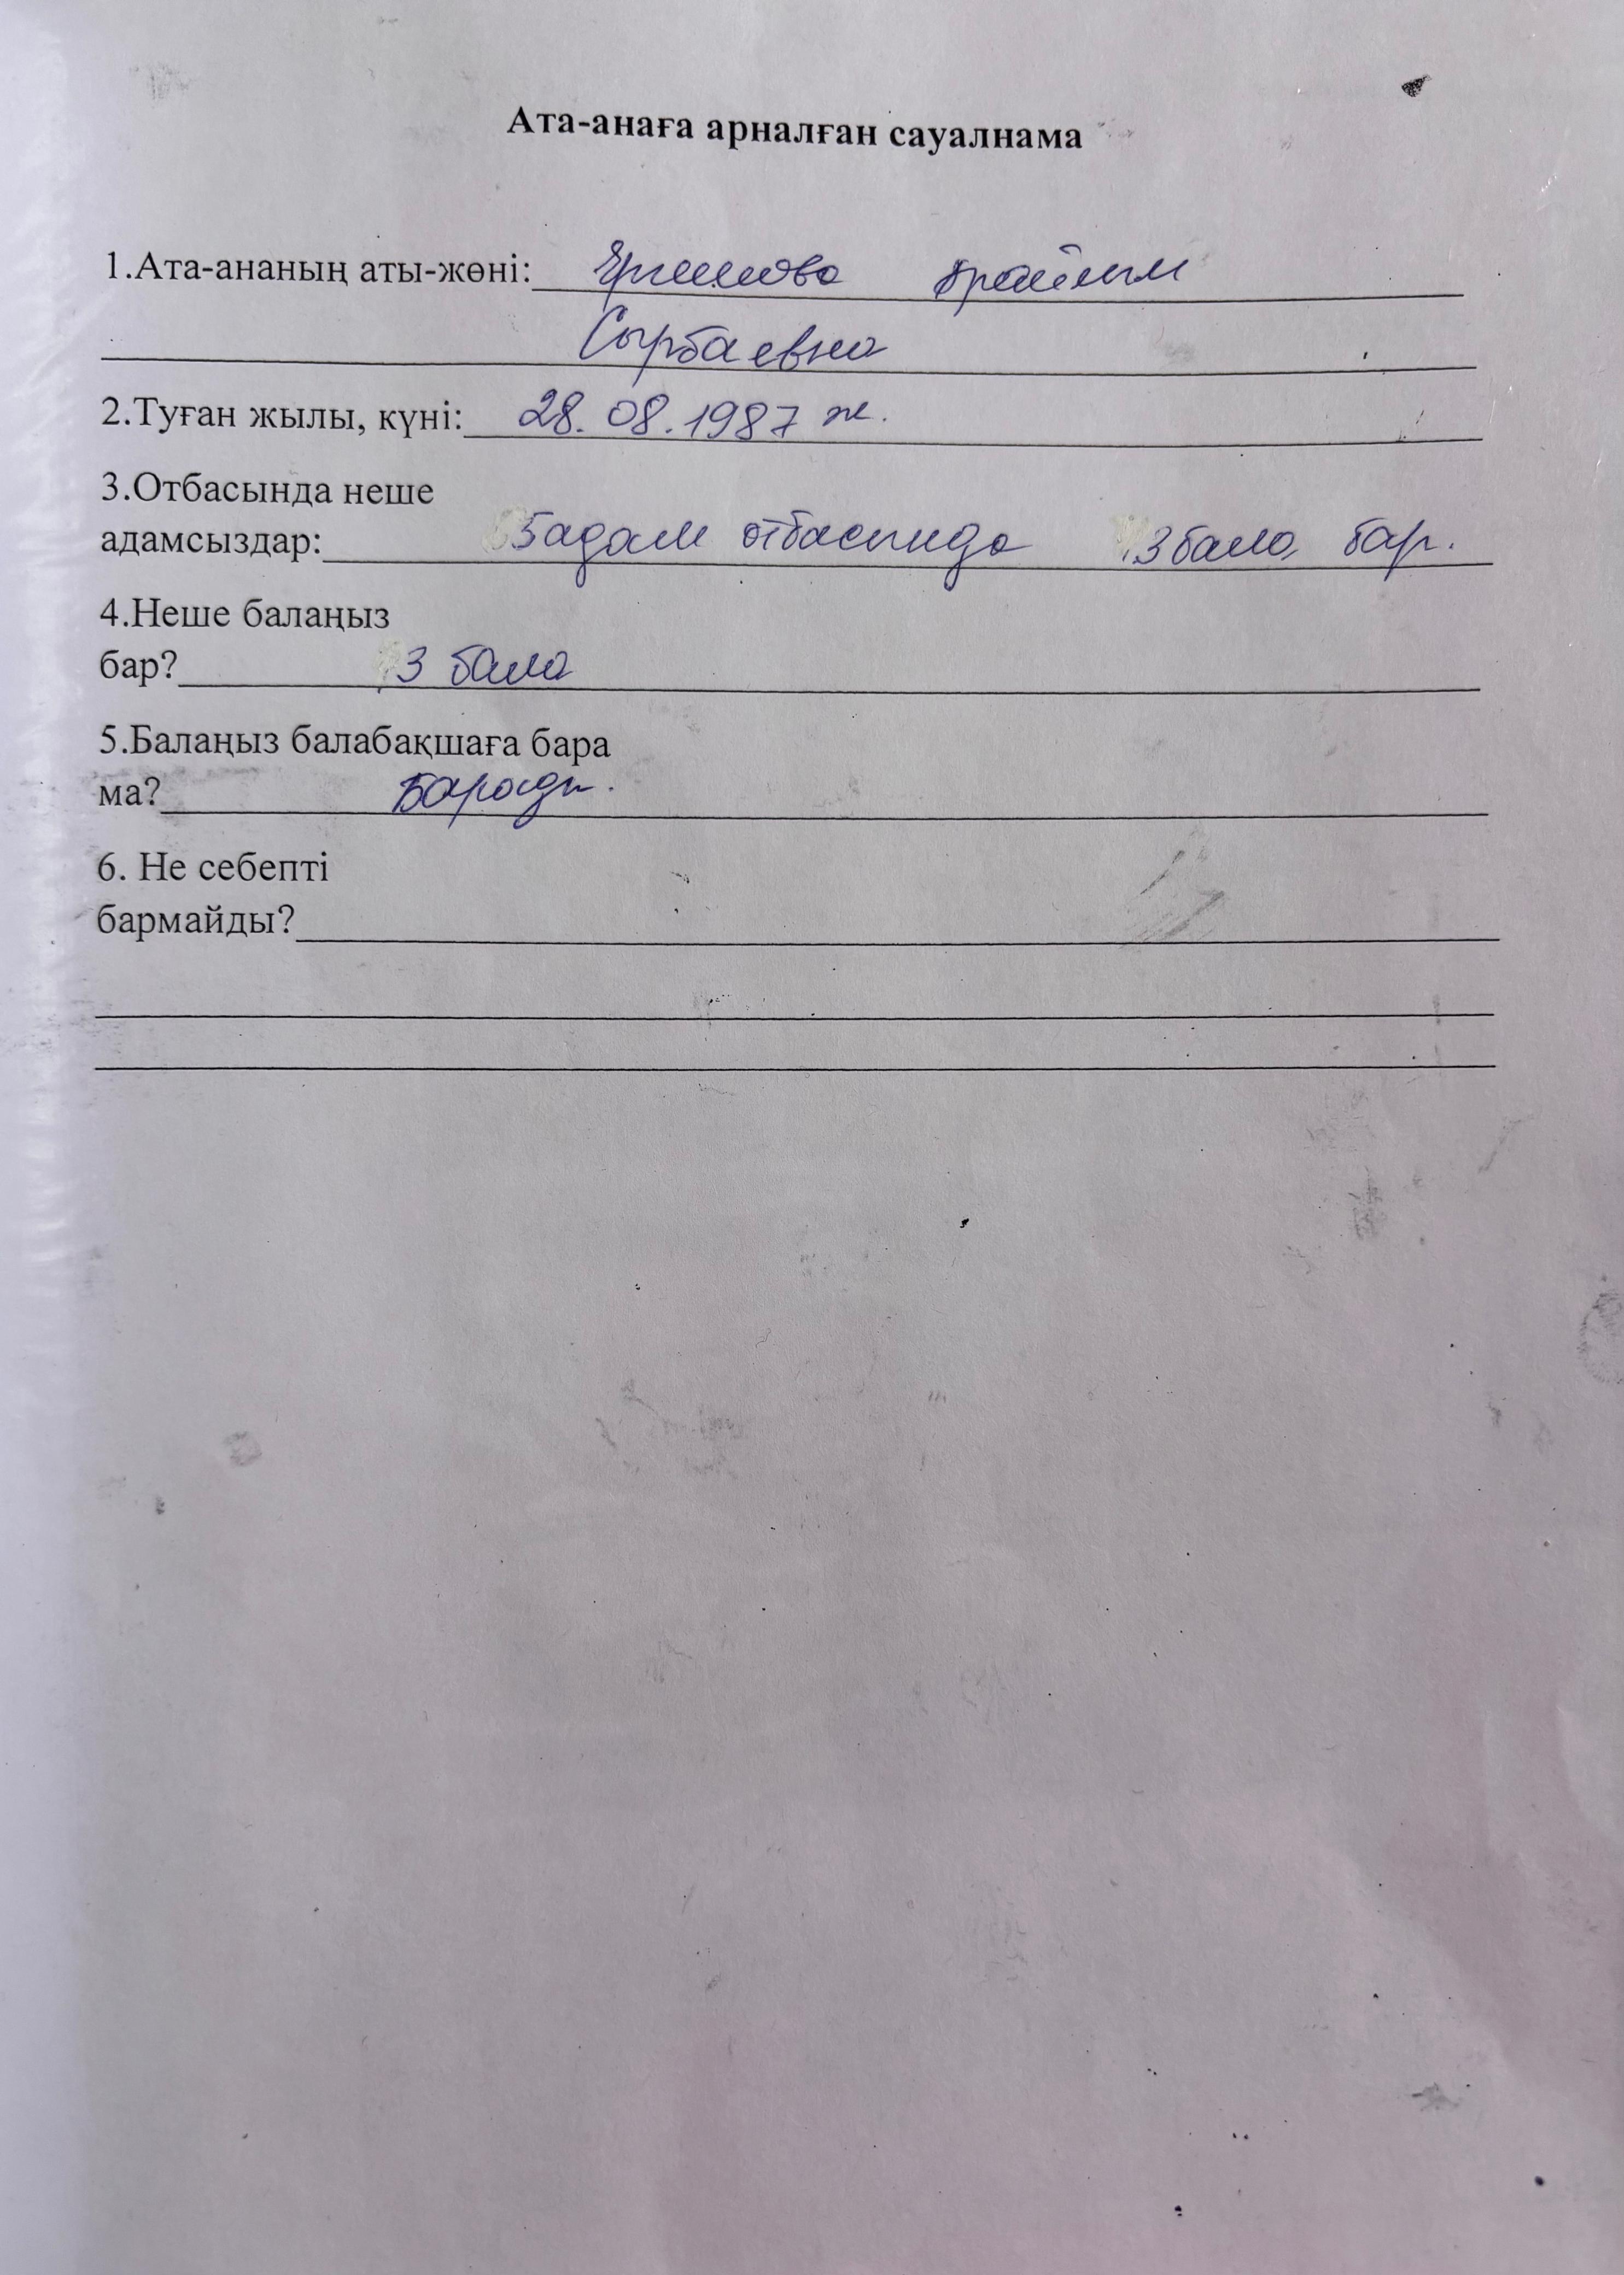 Ата-анаға арналған сауалнама
1.Ата-ананың аты-жөні:
Сырбаевна
2.Туған жылы, күні: 28.08.1987 ж.
3.Отбасында неше
адамсыздар: 5 адам отбасында 3 бала бар.
4.Неше балаңыз
бар? 3 бала
5.Балаңыз балабақшаға бара
ма? Барады.
6. Не себепті
бармайды?